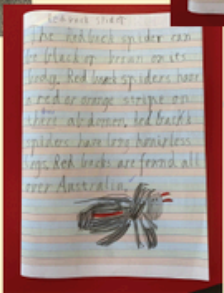 Redback spider
The Redback spider can
be black or brown on its
body. Red back spiders have
a red or orange stripe on
their abdomen. Red back
spiders have long hairless
legs. Red backs are found all
over Australia.